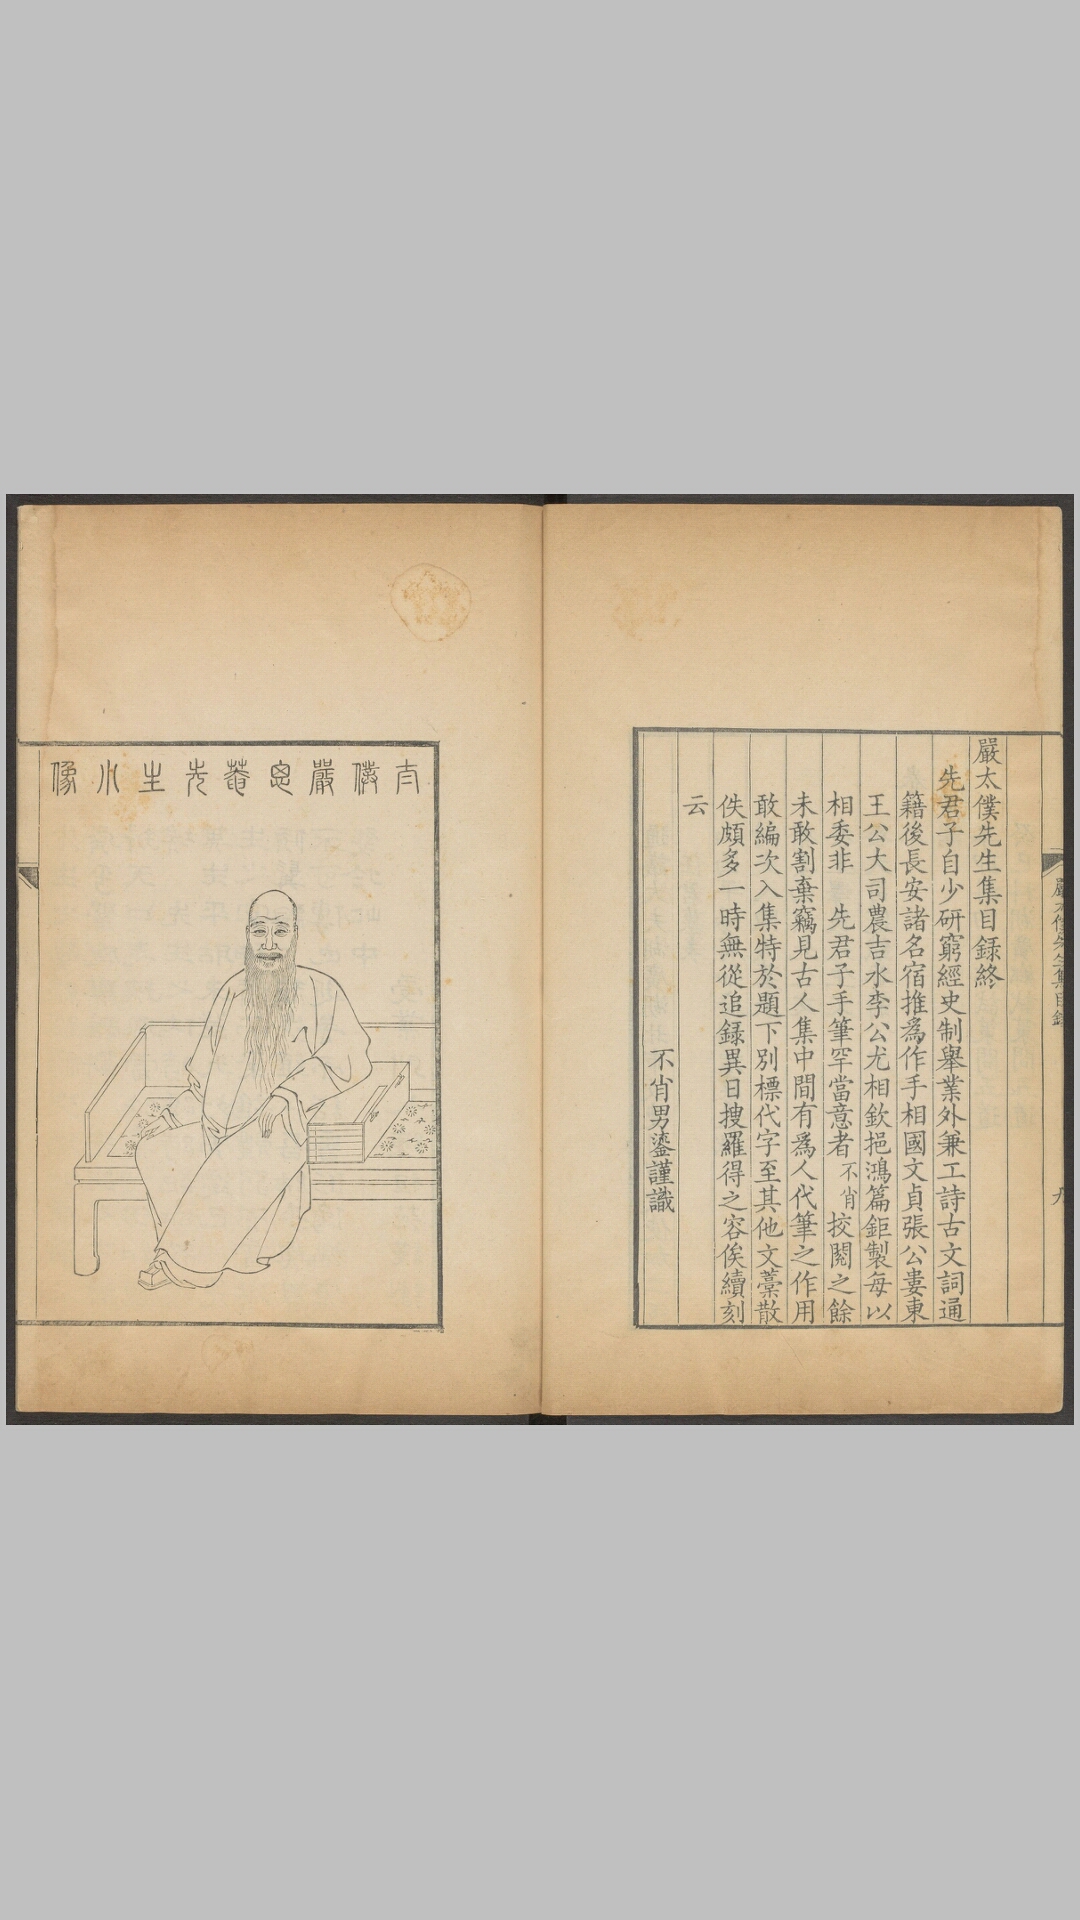 嚴太僕先生集目録終
先君子自少研窮經史制舉業外兼工詩古文詞通
籍後長安諸名宿推爲作手相國文貞張公婁東
王公大司農吉水李公尤相欽挹鴻篇鉅製每以
相委非　先君子手筆罕當意者不肖挍閱之餘
未敢割棄竊見古人集中間有爲人代筆之作用
敢編次入集特於題下別標代字至其他文藁散
佚頗多一時無從追録異日搜羅得之容俟續刻
云
不肖男鎏謹識
嚴太僕先生集目錄
九
太僕嚴思菴先生小像